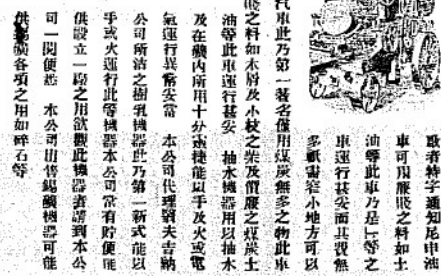 敬者特字通知尼申池
車可用廉賤之料如土
油等此車乃是上等之
車運行甚安而其費無
多祇需窄小地方可以
汽車此乃第一著名僅用煤炭無多之物此車
賤之料如木屑及小枝之柴及價廉之煤炭土
油等此車運行甚安 抽水機器用以抽水
及在礦內所用十分靈捷能以手及火或電
氣運行異常安當 本公司代理劉夫吉納
公司所沽之樹乳機器此乃第一新式能以
手或火運行此等機器本公司常有貯便能
供設立一器之用欲觀此機器者請到本公
司一閱便悉 本公司出售錫礦機器可能
供錫礦各項之用如碎石等